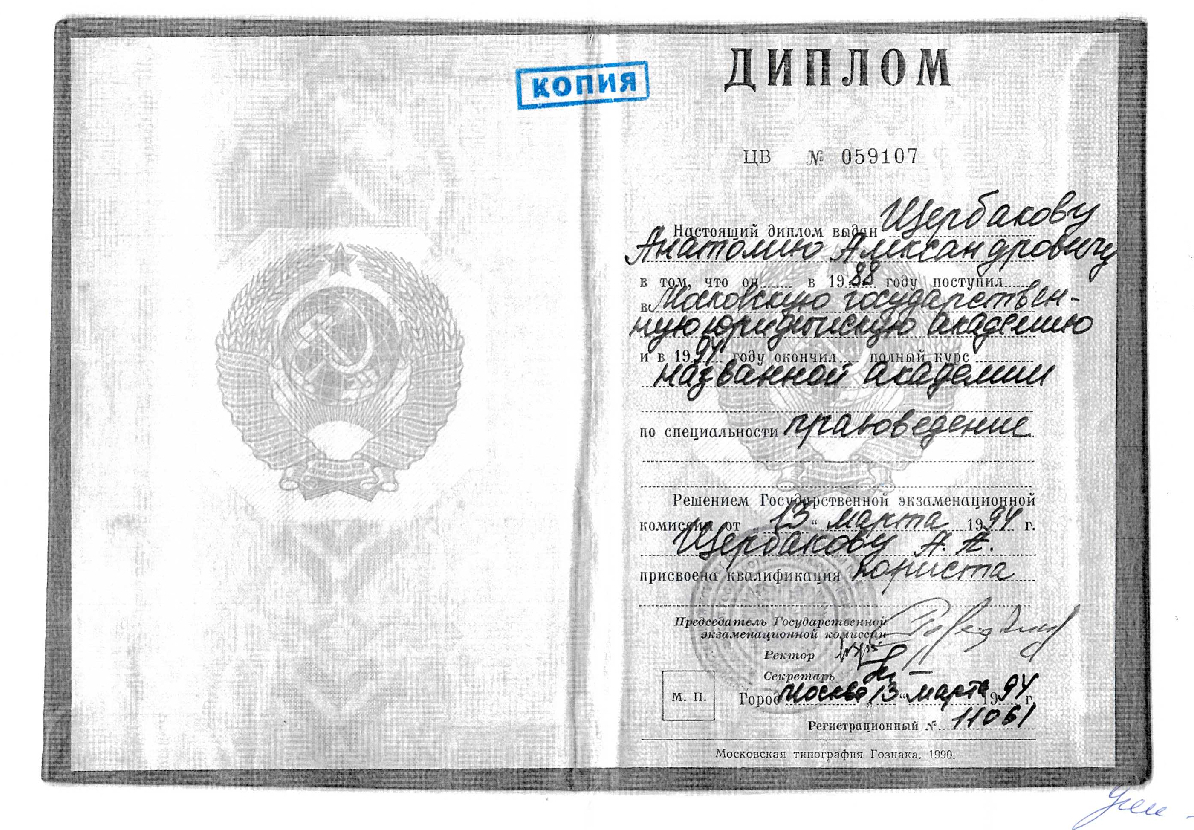 КОПИЯ
ДИПЛОМ
ЦВ № 059107
Настоящий диплом выдан Щербакову
Анатолию Александровичу
в том, что он в 1988 году поступил
в Московскую государствен-
ную юридическую академию
и в 1994 году окончил полный курс
названной академии
по специальности правоведение
Решением Государственной экзаменационной
комиссии от 13 " марта 1994 г.
Щербакову А. А.
присвоена квалификация юриста
Председатель Государственной
экзаменационной комиссии
Ректор
Секретарь
М. П.
Город Москва 13 " марта 1994 г.
Регистрационный № 11061
Московская типография Гознака. 1990.